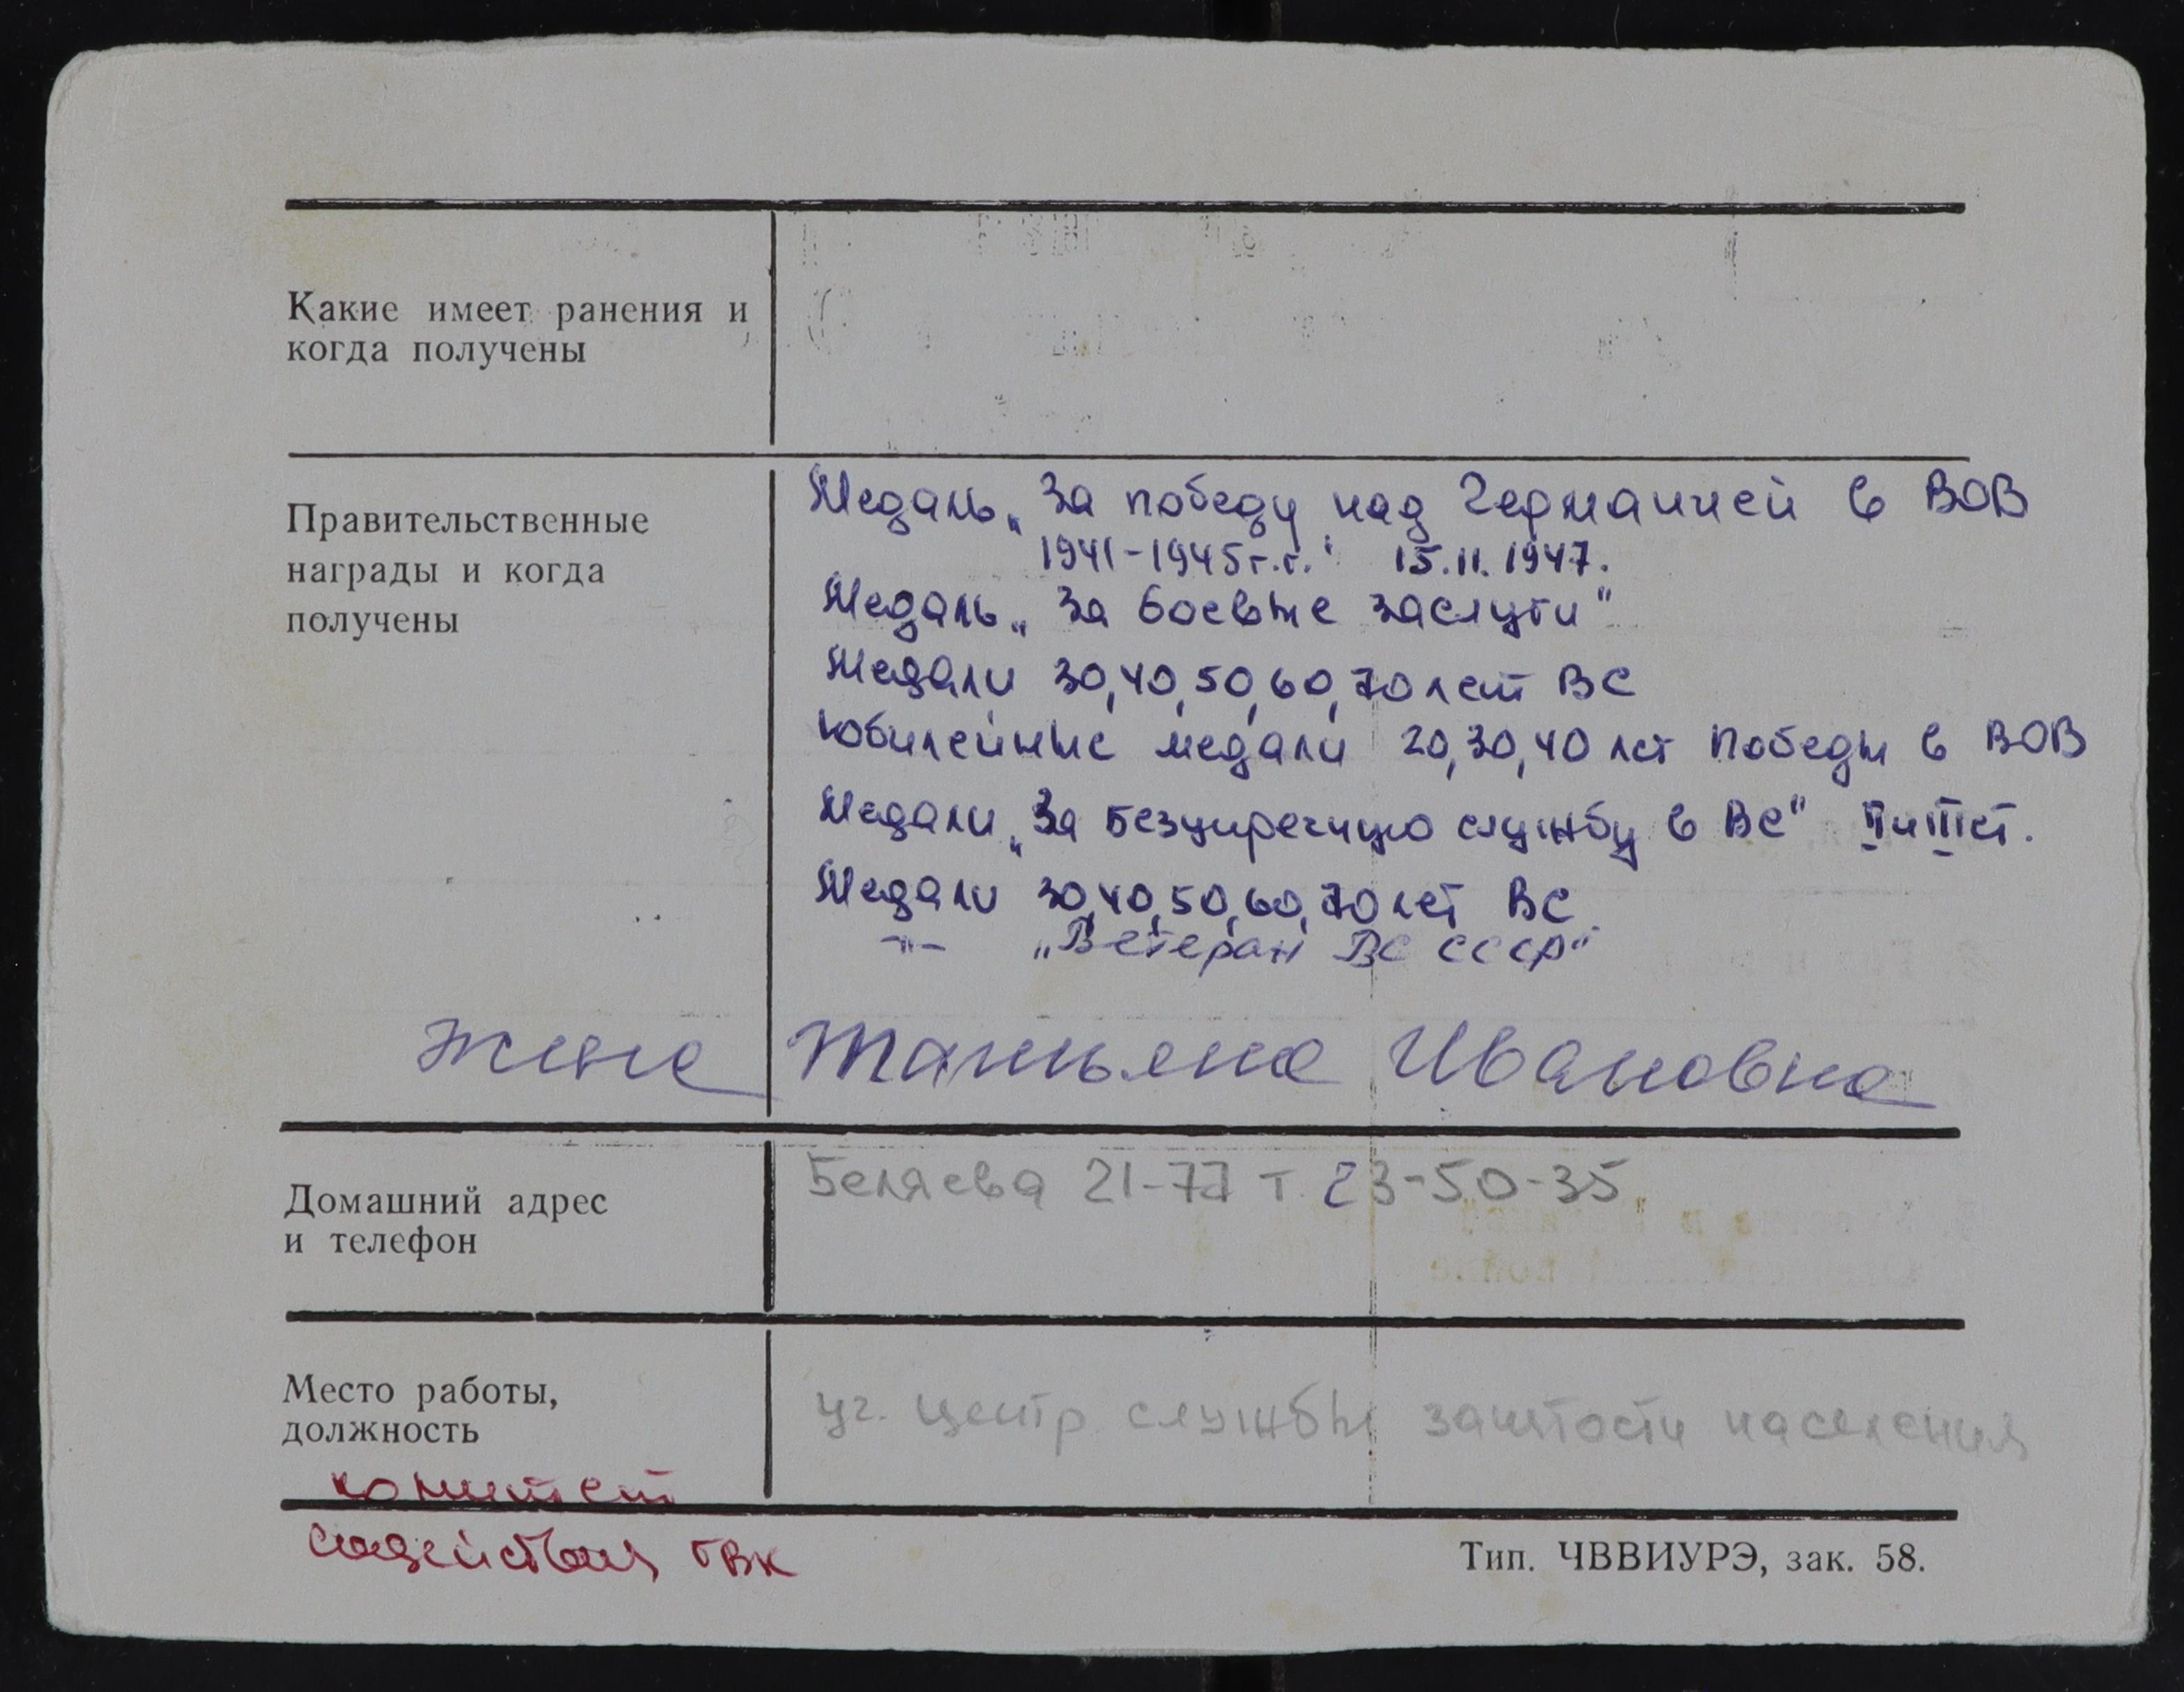 Какие имеет ранения и
когда получены
Правительственные
награды и когда
получены
Медаль „За победу над Германией в ВОВ
1941-1945г.г." 15.11.1947.
Медаль „За боевые заслуги"
Медали 30,40,50,60,70 лет ВС
Юбилейные медали 20,30,40 лет Победы в ВОВ
Медали „За безупречную службу в ВС" II и III ст.
Медали 30,40,50,60,70 лет ВС
-"- „Ветеран ВС СССР"
жена Татьяна Ивановна
Домашний адрес
и телефон
Беляева 21-77 т. 23-50-35
Место работы,
должность
уч. центр службы занятости населения
комитет
содействия ГВК
Тип. ЧВВИУРЭ, зак. 58.